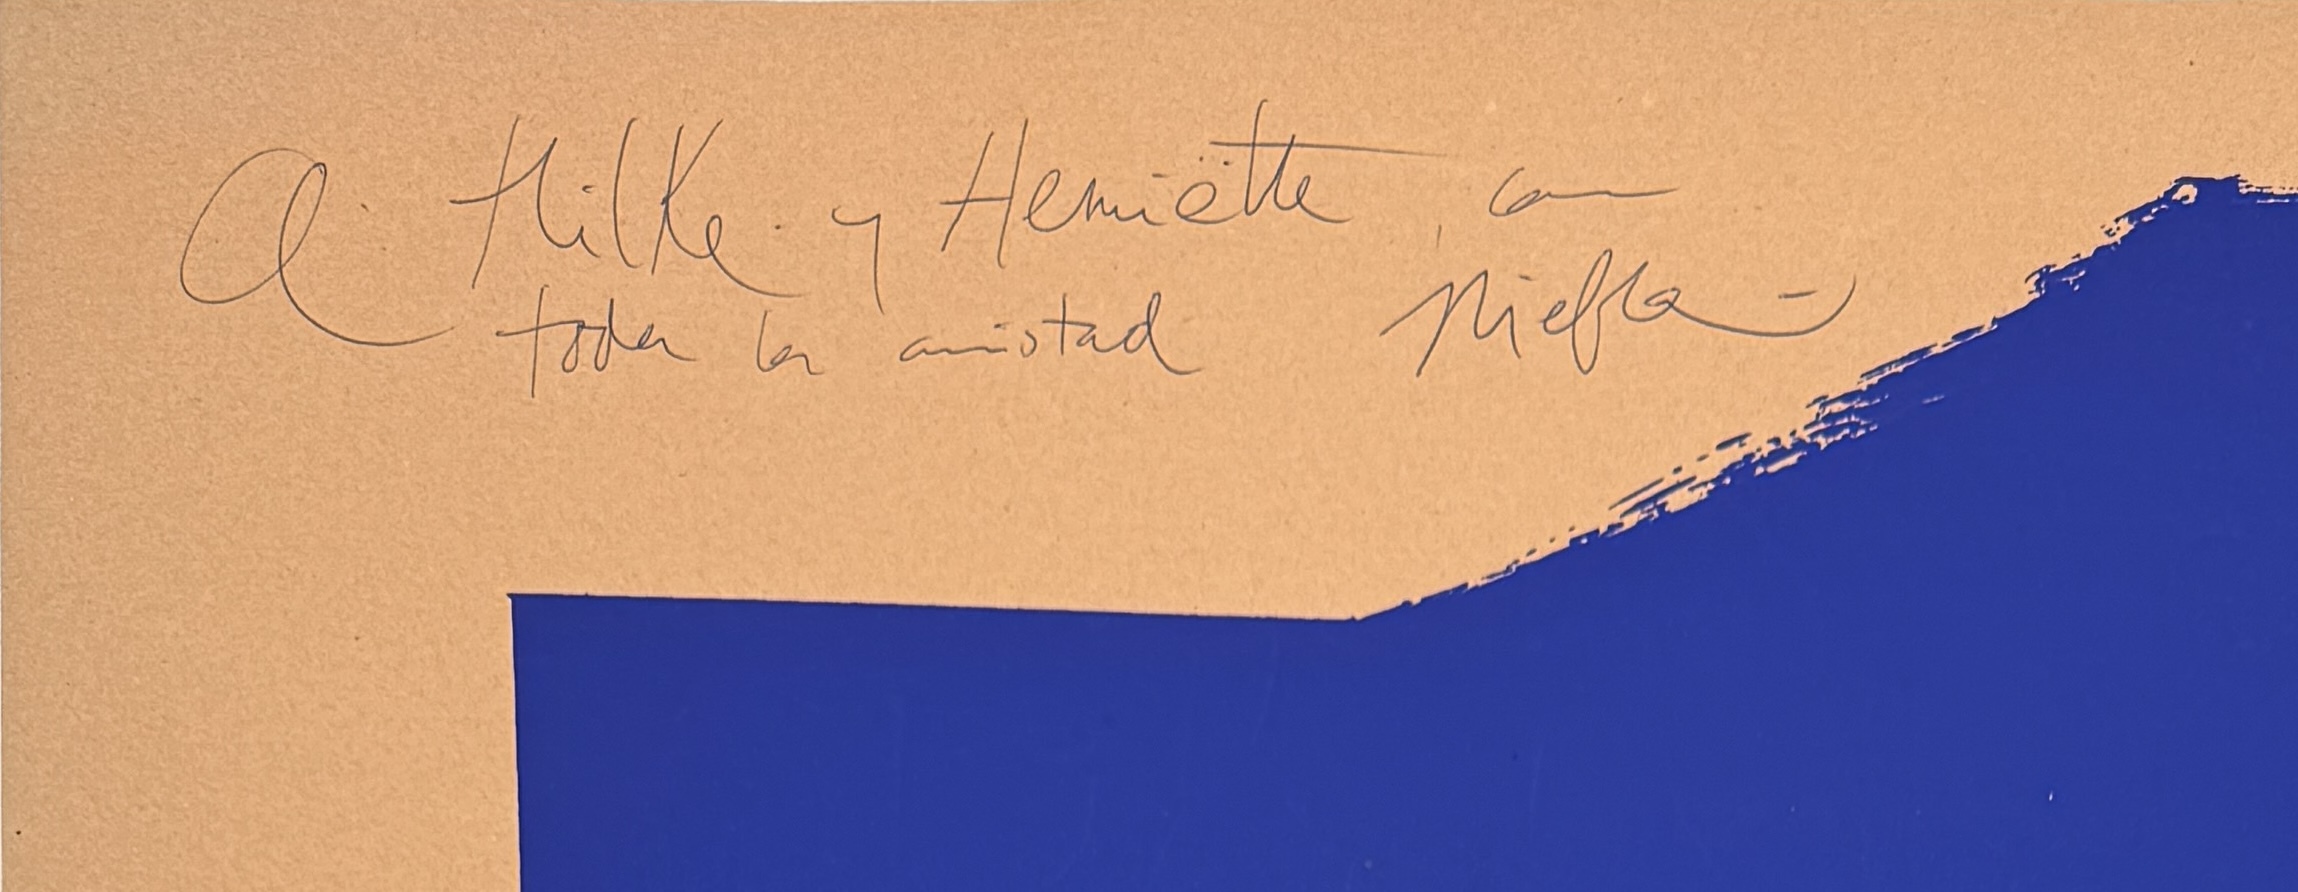 A Hilke y Henriëtte, con
toda la amistad Niebla